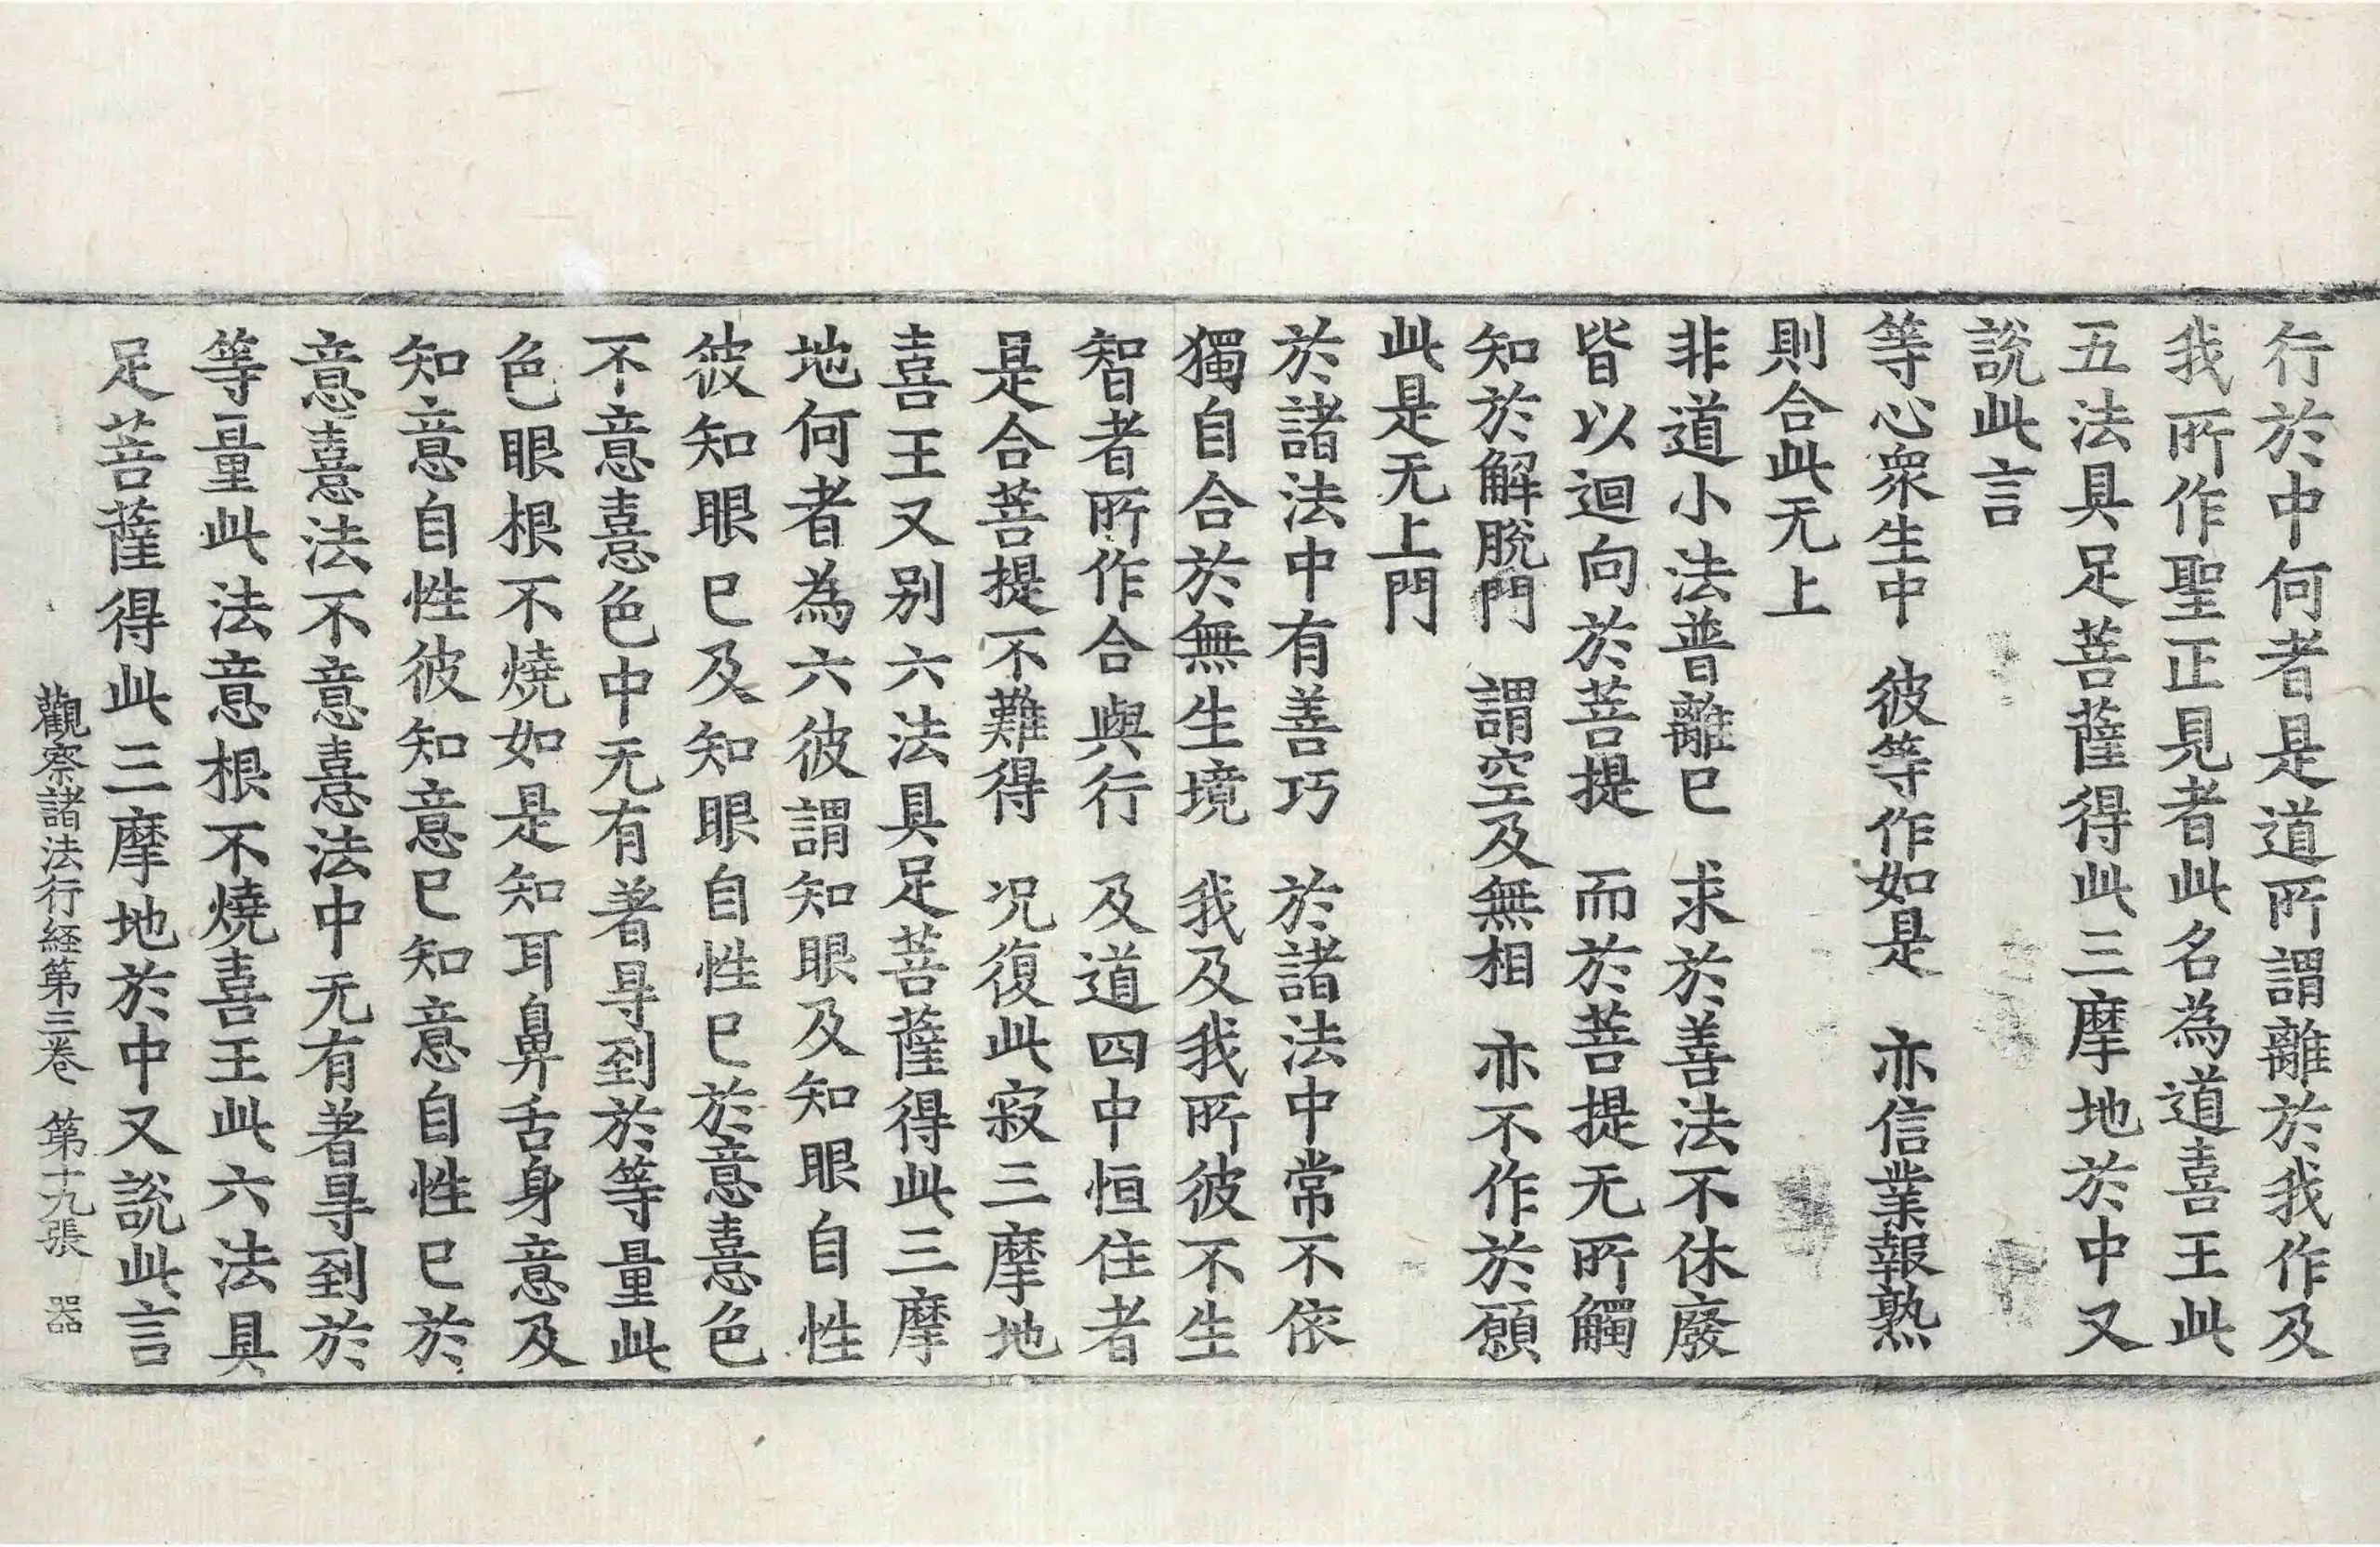 行於中何者是道所謂離於我作及
我所作聖正見者此名為道喜王此
五法具足菩薩得此三摩地於中又
說此言
等心衆生中　彼等作如是　亦信業報熟
則合此无上
非道小法普離已　求於善法不休廢
皆以迴向於菩提　而於菩提无所觸
知於解脫門　謂空及無相　亦不作於願
此是无上門
於諸法中有善巧　於諸法中常不依
獨自合於無生境　我及我所彼不生
智者所作合與行　及道四中恒住者
是合菩提不難得　况復此寂三摩地
喜王又別六法具足菩薩得此三摩
地何者為六彼謂知眼及知眼自性
彼知眼已及知眼自性已於意憙色
不意憙色中无有著㝵到於等量此
色眼根不燒如是知耳鼻舌身意及
知意自性彼知意已知意自性已於
意憙法不意憙法中无有著㝵到於
等量此法意根不燒喜王此六法具
足菩薩得此三摩地於中又說此言
觀察諸法行経第三卷　第十九張　器